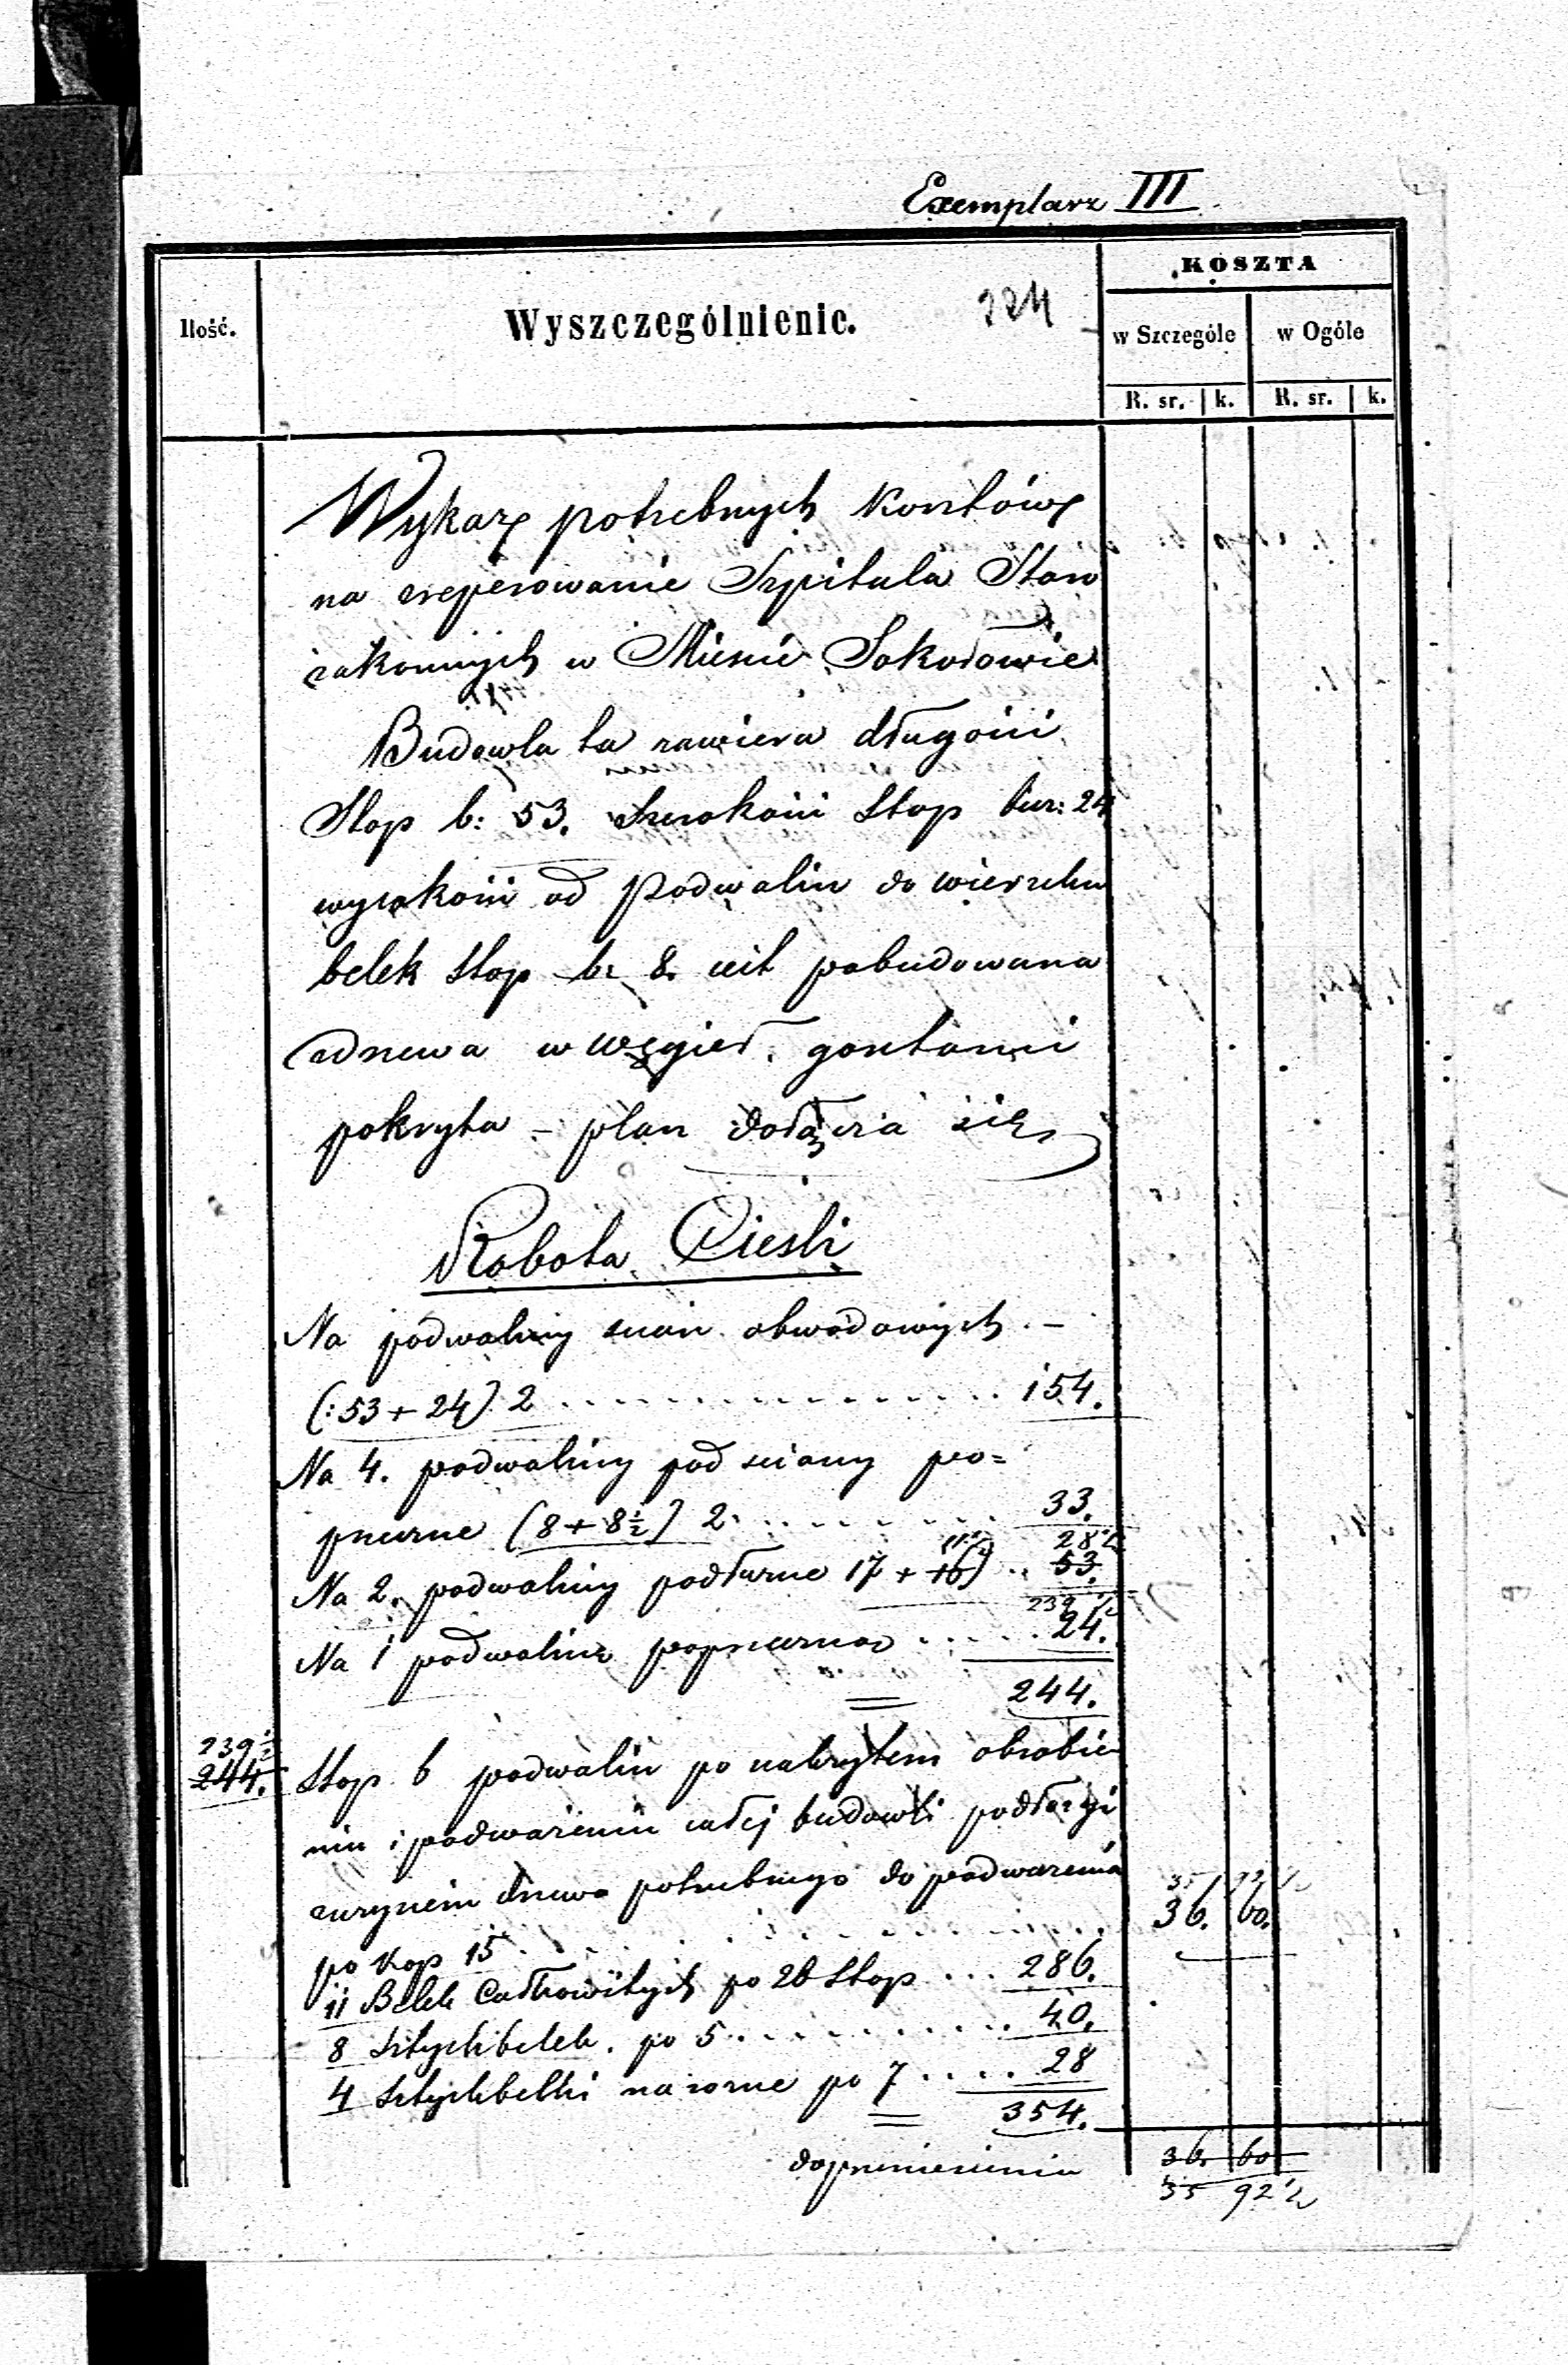 Exemplarz III
KOSZTA
Ilość.
Wyszczególnienie.
224
w Szczególe
w Ogóle
R. sr. k. R. sr. k.
Wykaz potrzebnych kosztów
na zreperowanie Szpitala Staro
zakonnych w Mieście Sokołowie
Budowla ta zawiera długości
Stop b: 53. Szerokości Stop bież: 24
wysokości od Podwalin do wierzchu
belek Stop b: 8. jest pobudowana
z drzewa w węgieł, gontami
pokryta – plan dołącza się
Robota Cieśli
Na podwaliny ścian obwodowych –
(: 53 + 24) 2 ........ 154.
Na 4. podwaliny pod ściany po=
przeczne (8 + 8½) 2. ........ 33.
28½
Na 2. podwaliny podłużne 17 + 16) .. 53.
239½
Na 1 podwalinę poprzeczną ..... 24.
= 244.
239½
244. Stop b podwalin po należytem obrobie
niu i podważeniu całej budowli podłożyć
z użyciem drzewa potrzebnego do podważenia
35 92½
po kop 15 ........ 36. 60.
11 Belek Całkowitych po 26 Stop ... 286.
8 Sztychbelek. po 5 ........ 40.
4 Sztychbelki narożne po 7 .... 28
= 354.
do przeniesienia 36. 60
35 92½